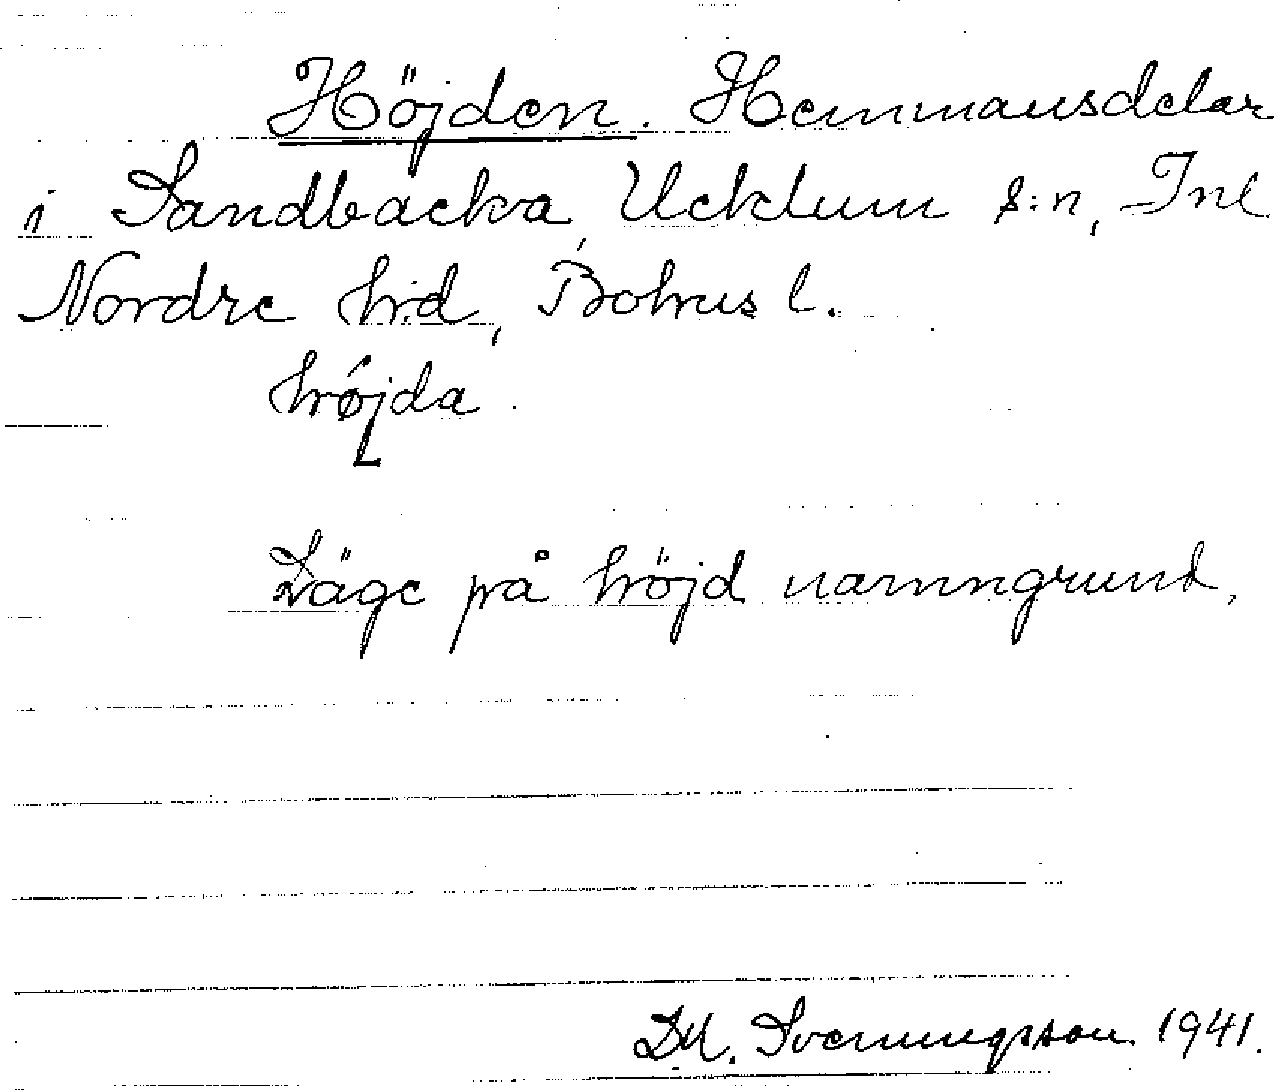 Höjden. Hemmansdelar
i Sandbacka, Ucklum s:n, Inl
Nordre h:d, Bohus l.
höjda
Läge på höjd namngrund.
Svenungsson 1941.